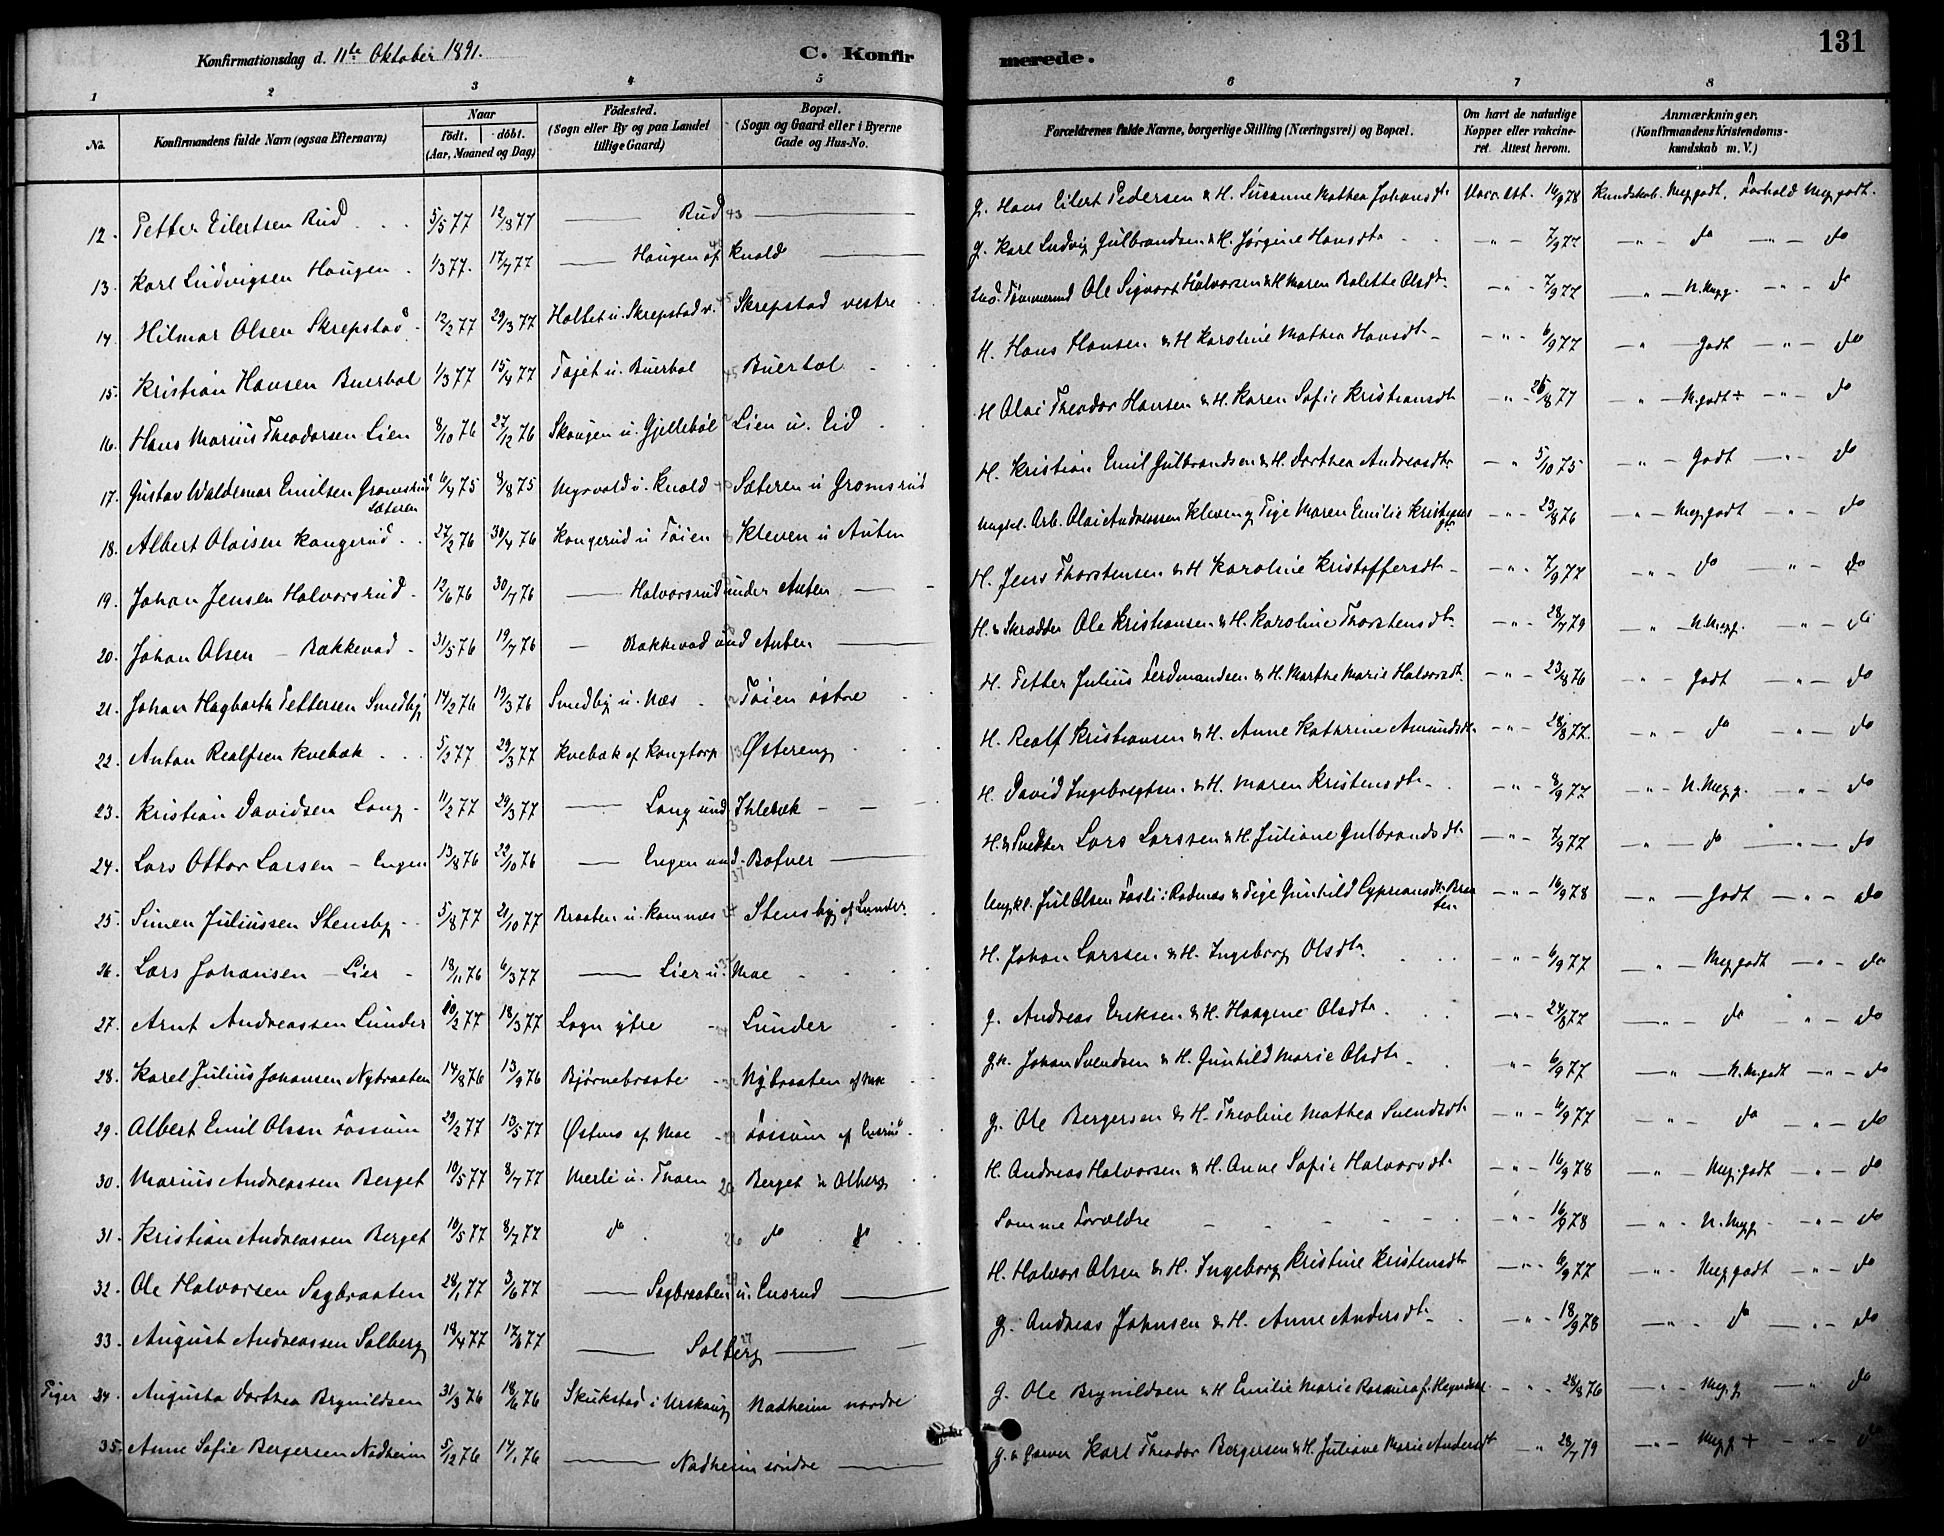 131
Konfirmationsdag d. 11te Oktober 1891.
C. Konfirmerede.
1 2 3 4 5 6 7 8
No. Konfirmandens fulde Navn (ogsaa Efternavn) Naar födt. döbt. (Aar, Maaned og Dag) Födested. (Sogn eller By og paa Landet tillige Gaard) Bopæl. (Sogn og Gaard eller i Byerne Gade og Hus-No. Forældrenes fulde Navne, borgerlige Stilling (Næringsvei) og Bopæl. Om havt de naturlige Kopper eller vakcineret. Attest herom. Anmærkninger. (Konfirmandens Kristendomskundskab m. V.)
12. Petter Eilertsen Rud 5/5 77 12/8 77 Rud 43 G. Hans Eilert Pedersen & H. Susanne Mathea Johansdt. Vacc. Att. 16/9 78 Kundskab. Meg. godt. Forhold Meg godt.
13. Karl Ludvigsen Haugen 1/3 77. 17/7 77 Haugen af Knold G. Karl Ludvig Gulbrandsen & H. Jørgine Hansdt. 7/9 77 do do
14. Hilmar Olsen Skrepstad 12/2 77 29/3 77 Holtet u. Skrepstad v. 45 Skrepstad vestre Ole Sigvart Halvorsen & H Maren Bolette Olsdt. 7/9 77 N. Megg. do
15. Kristian Hansen Buerhol 1/3 77 15/4 77 Tøjet u. Buerhol 45 Buerhol H. Hans Hansen & H Karoline Mathea Hansdt. 6/9 77 Godt do
16. Hans Marius Theodorsen Lien 8/10 76 27/12 76 Skougen u. Gjellebøl 2 Lien u. Eid H Olai Theodor Hansen & H. Karen Sofie Kristiansdt 25/8 77 M. godt ÷ do
17. Gustav Waldemar Emilsen Gromsrud Sæteren 6/4 75 8/8 75 Myrvold u. Knold Sæteren u Gromsrud H. Kristian Emil Gulbrandsen & H. Dorthea Andreasdt. 5/10 75 Godt do
18. Albert Olaisen Kongerud 27/2 76 30/4 76 Kongerud u Töien Kleven u Auten Ungkl. Arb. Olai Andreassen Kleven & Pige Maren Emilie Kristians dt. 23/8 76 Meg. godt do
19. Johan Jensen Halvorsrud 12/6 76 30/7 76 Halvorsrud under Auten H. Jens Thorstensen & H Karoline Kristoffersdt. 7/9 77 do do
20. Johan Olsen Bakkevad 31/5 76 19/7 76 Bakkevad und Auten H. & Skrædder Ole Kristiansen & H. Karoline Thorstensdt. 28/7 79 N. Megg. do
21. Johan Hagbarth Pettersen Smedby 14/2 76 19/3 76 Smedby u. Næs 12 Töien östre H. Petter Julius Ferdinandsen & H. Marthe Marie Halvorsdt. 23/8 76 Godt do
22. Anton Realfsen Kvebæk 5/2 77 29/3 77 Kvebæk af Kongtorp 13 Østereng H. Realf Kristiansen & H. Anne Kathrine Amundsdt. 28/8 77. do do
23. Kristian Davidsen Lang 11/2 77 29/3 77 Lang und Ihlebæk H. David Ingebregtsen & H. Maren Kristensdt. 8/9 77 N. Megg. do
24. Lars Ottar Larsen Engen 13/8 76 22/10 76 Engen und. Bøfver H. & Snedker Lars Larssen & H. Juliane Gulbrandsdt. 7/9 77 do do
25. Simen Juliussen Stensby 5/8 77 21/10 77 Braaten u. Komnæs Stensby af Lunder Ungkl. Jul Olsen Fosli i Rødenæs & Pige Gunhild Cypriansdt. Braaten 16/9 78 Godt do
26. Lars Johansen Lier 18/11 76 6/3 77 Lier u. Moe H. Johan Larssen & H. Ingeborg Olsdt. 6/9 77 Meg godt do
27. Arnt Andreassen Lunder 10/2 77 18/3 77 Logn ytre Lunder G. Andreas Eriksen & H. Haagine Olsdt. 24/8 77 do do
28. Karel Julius Johansen Nybraaten 14/8 76 13/9 76 Bjørnebraate 32 Nybraaten af Moe Johan Svendsen & H. Gunhild Marie Olsdt. 6/9 77 N. M. godt do
29. Albert Emil Olsen Fossum 29/2 77 13/5 77 Østmo af Moe Fossum af Ensrud G. Ole Bergersen & H. Theoline Mathea Svendsdt. 6/9 77 do do
30. Marius Andreassen Berget 10/5 77 8/7 77 Merli u. Thoen 26 Berget u Olberg H. Andreas Halvorsen & H. Anne Sofie Halvorsdt. 16/9 78 Meg. godt do
31. Kristian Andreassen Berget 10/5 77 8/7 77 do 26 do do Samme Forældre 16/9 78 N. Megg. do
32. Ole Halvorsen Sagbraaten 28/1 77 3/6 77 Sagbraaten u. Ensrud H. Halvor Olsen & H. Ingeborg Kristine Kristensdt. 6/9 77 Meg godt do
33. August Andreassen Solberg 18/4 77 17/6 77 Solberg 27 G. Andreas Johnsen & H. Anne Andersdt. 18/9 78 do do
Piger 34. Augusta Dorthea Brynildsen 31/3 76 18/6 76 Skukstad i Urskoug Nadheim nordre G. Ole Brynildsen & H Emilie Marie 28/8 76 Meg. g do
35. Anne Sofie Bergersen Nadheim 5/12 76 14/1 76 Nadheim söndre G. & Garver Karl Theodor Bergersen & H. Juliane Marie Andersdt 28/7 79 Megg + do